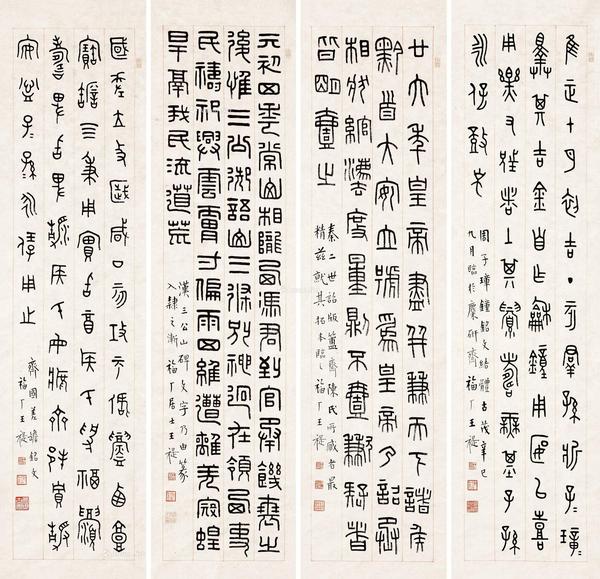 隹正十月初吉丁亥羣孫斨子子璋
擇其吉金自乍龢鐘用匽以喜
用樂父兄者士其眉壽無基子孫
永保鼓之
周子璋鐘銘文結體古茂辛巳
九月臨於麋研齋福厂王禔
廿六年皇帝盡并兼天下諸矦
黔首大安立號為皇帝乃詔丞
相狀綰灋度量則不壹歉疑者
皆明壹之
秦二世詔版簠齋陳氏所藏者最
精茲就其拓本臨之福厂王禔
元初四年常山相隴西馮君到官承饑衰之
後惟三公御語山三條別神迥在領西吏
民禱祀興雲膚寸偏雨四維遭離羌寇蝗
旱鬲我民流道荒
漢三公山碑文字乃由篆
入隸之漸福厂居士王禔
國差立事歲咸丁亥攻帀鑄西
寶四秉用實旨酉侯氏受福眉
壽卑旨卑瀞侯氏毋毋齊邦靜
安寧子子孫孫永保用之
齊國差銘文
福厂王禔